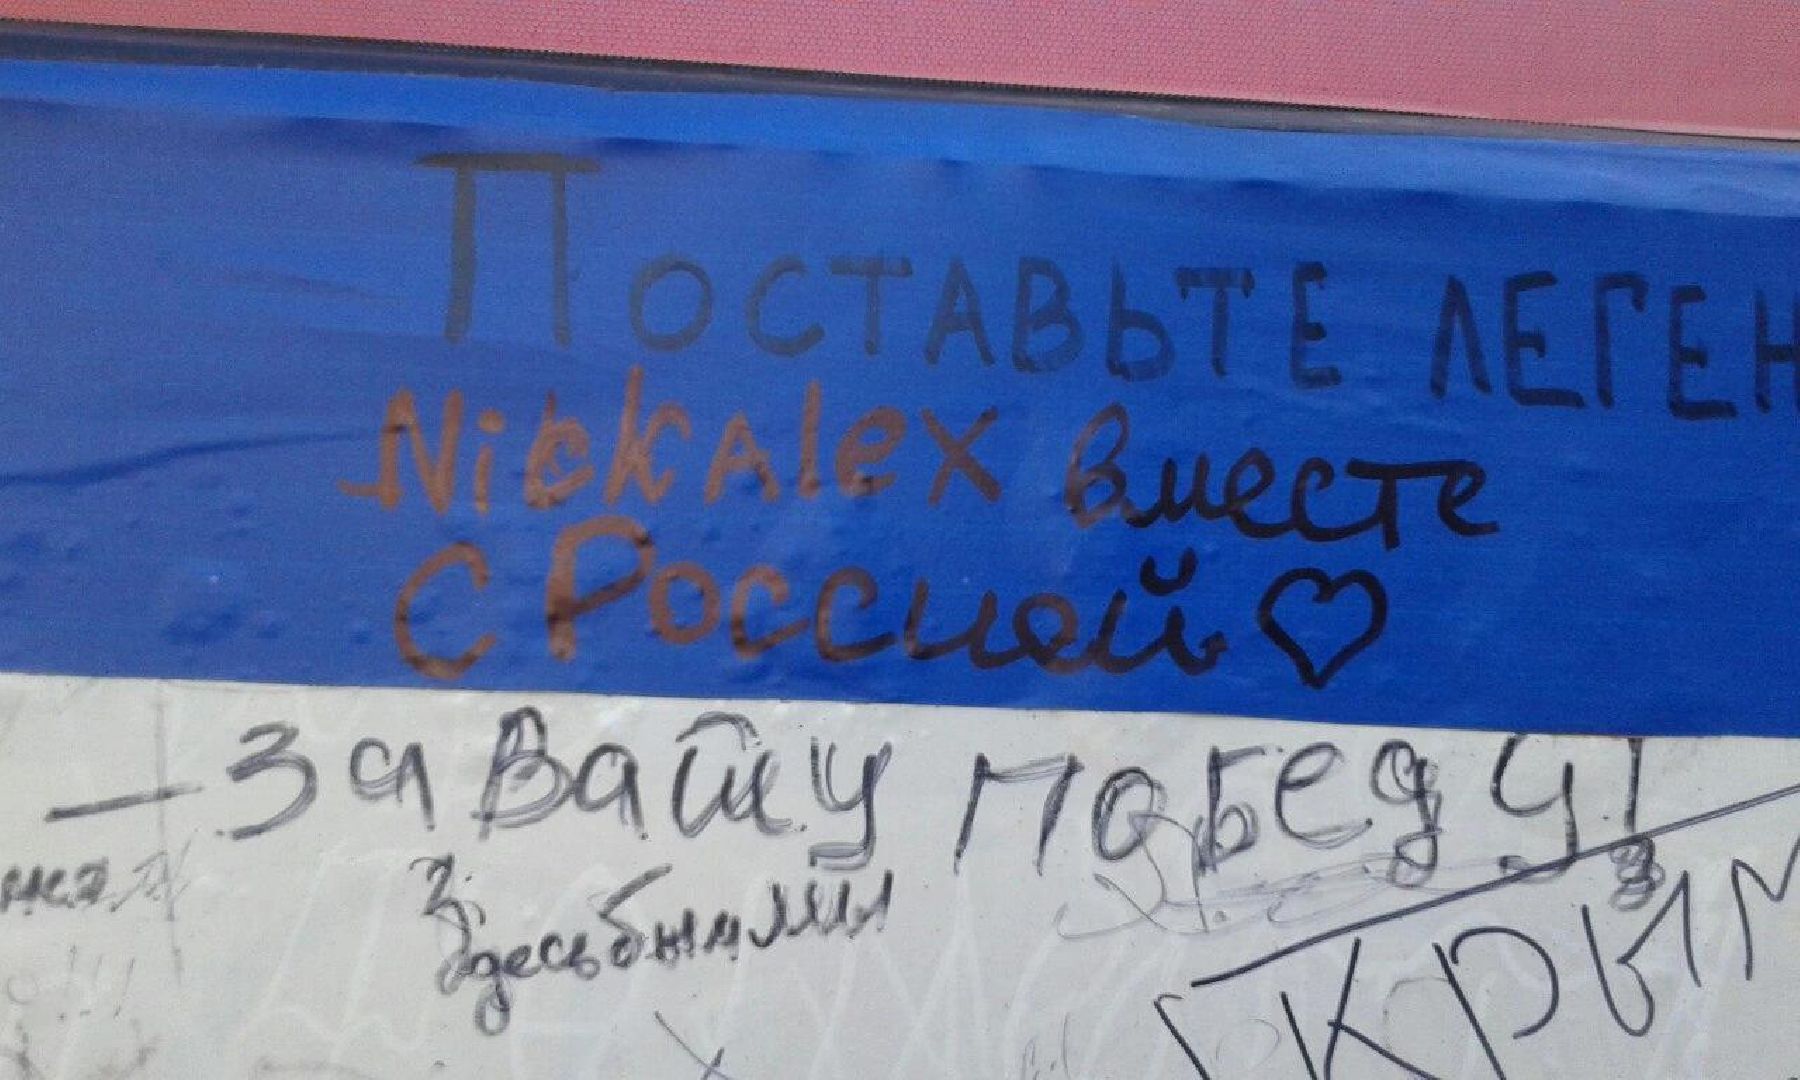 Поставьте леген
Nickalex вместе
с Россией ♡
— За Вашу победу!
Здесь были мы
Крым